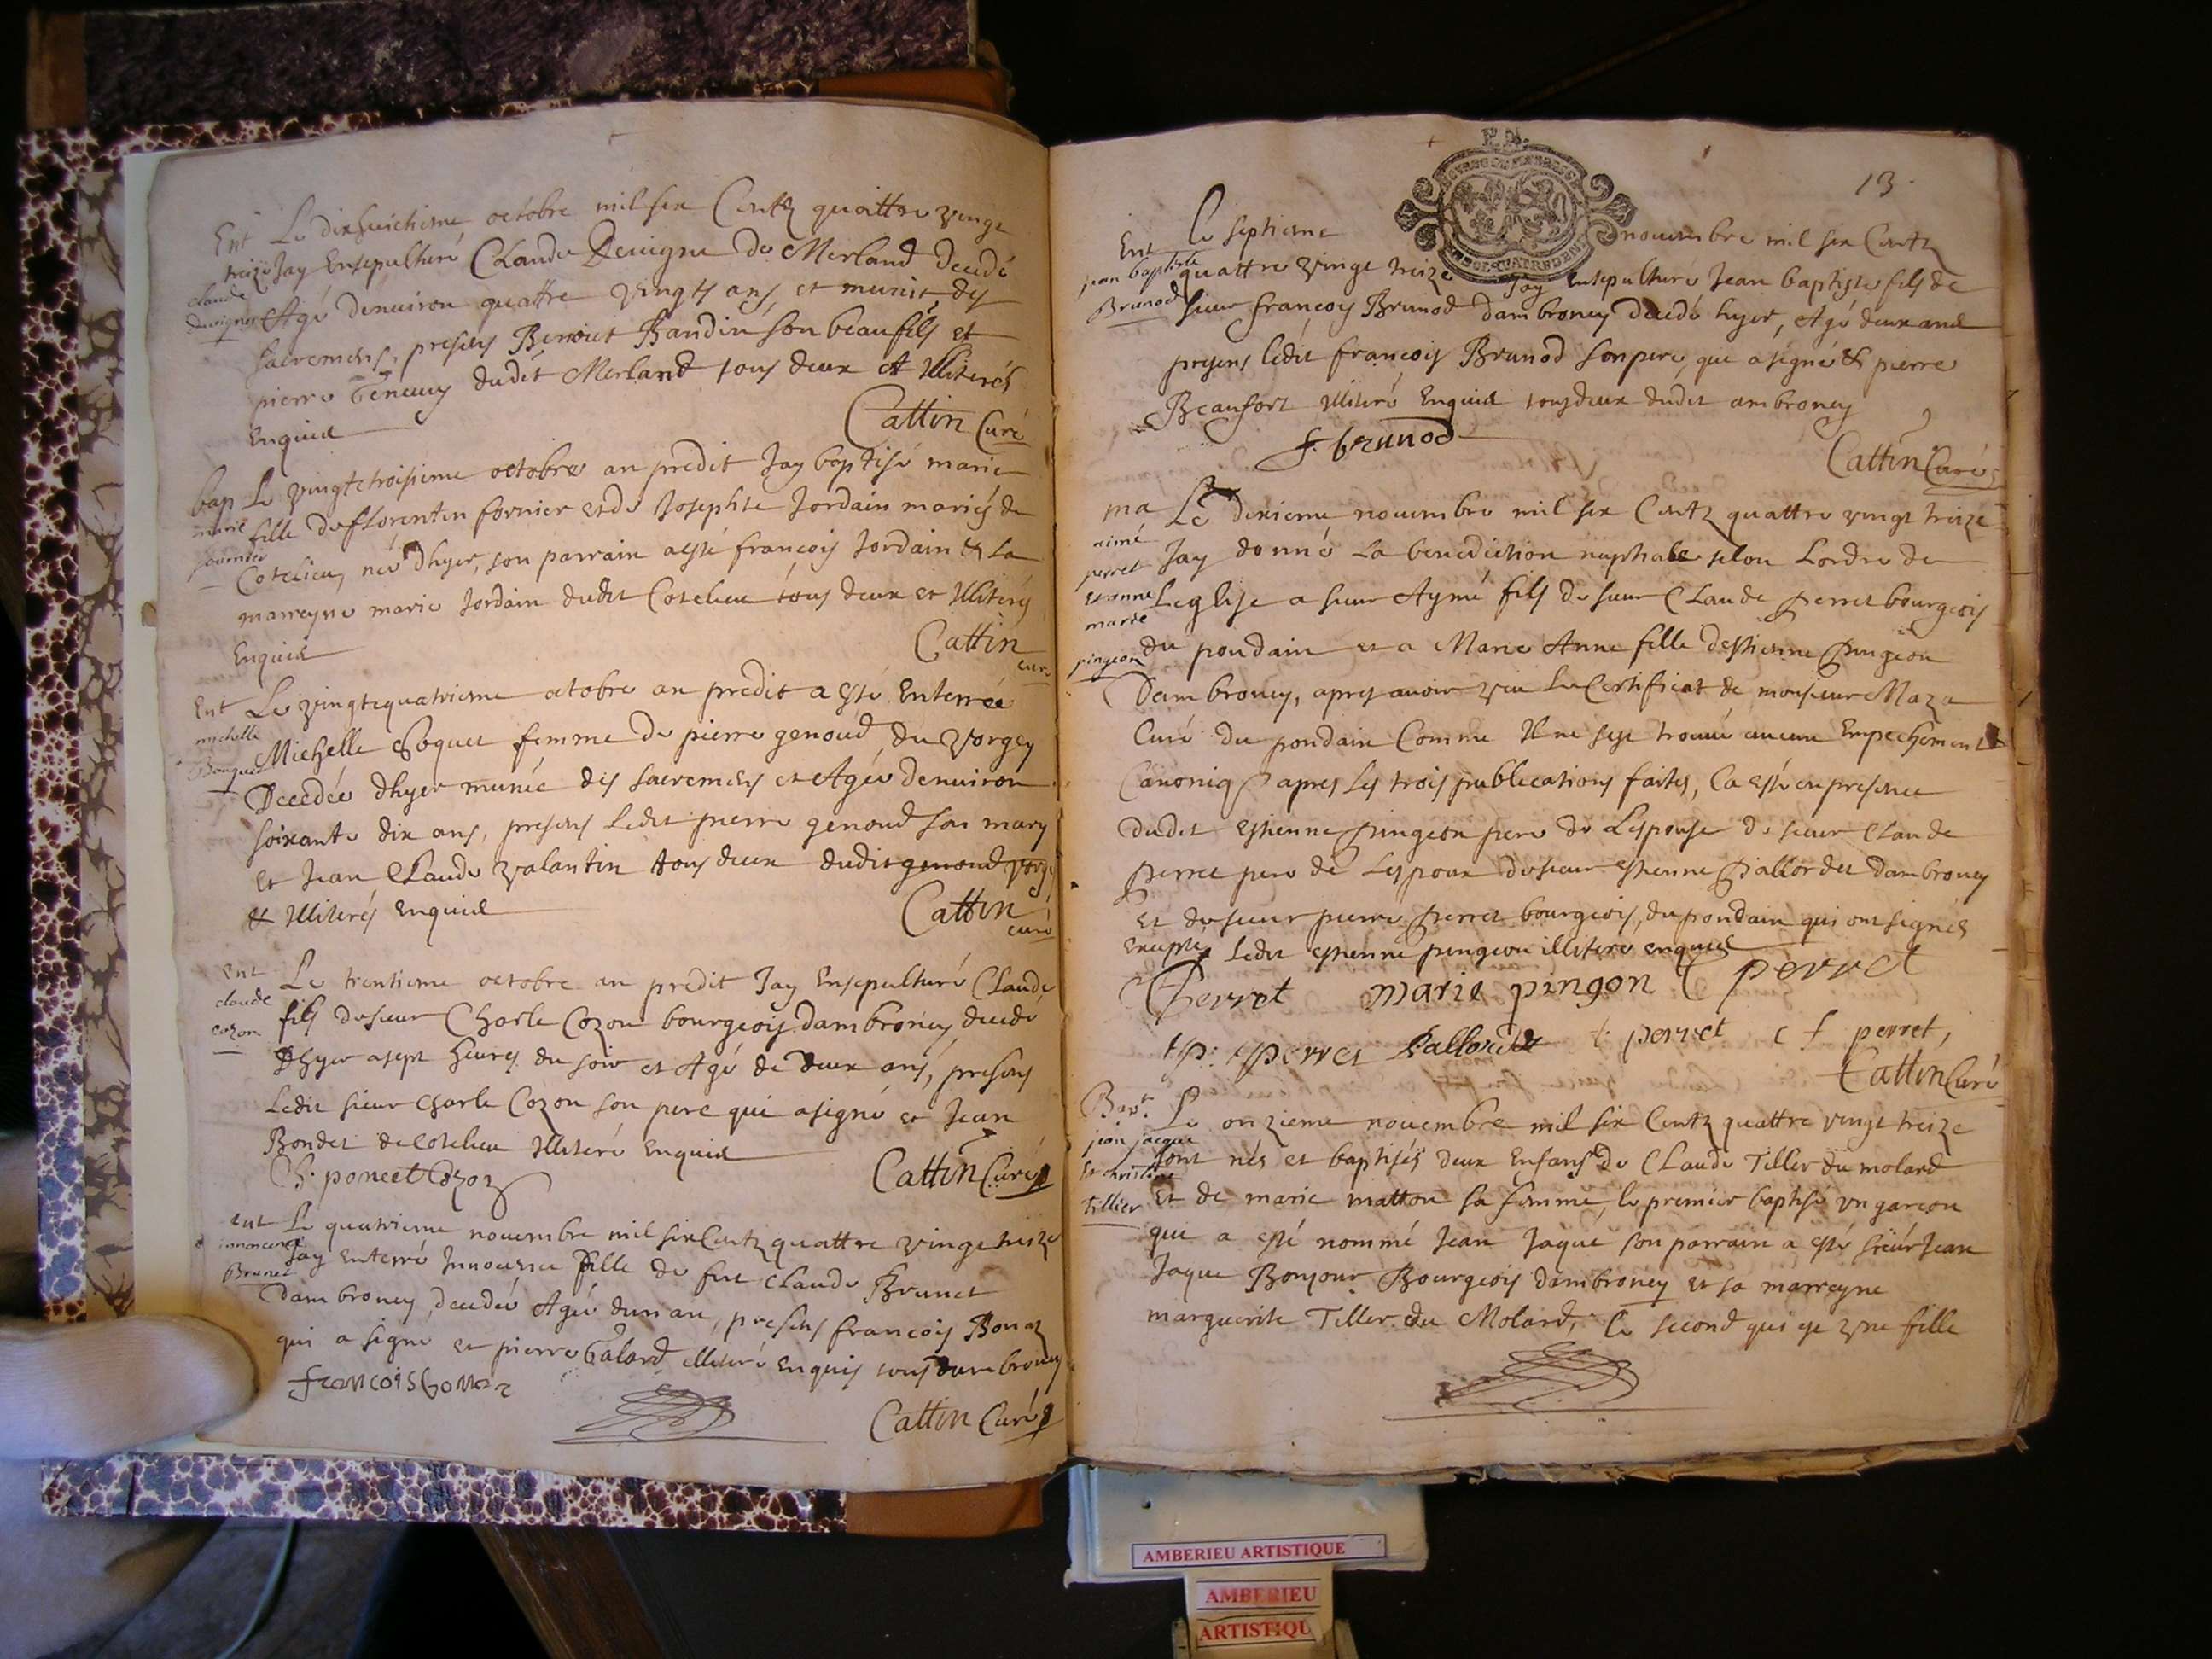 Ent Le dixhuictieme octobre mil six Centz quattre vingt
treize Jay Ensepulturé Claude Deuigne de Merland decedé
claude
duvigne
Agé denuiron quattre vingts ans, et munit des
sacremens, presens Benoict Baudin son beaufils et
pierre Teneuy dudit Merland tous deux et Illiterés
Enquid
Cattin Curé
bap Le vingtetroisieme octobre an predit Jay baptisé marie
marie
fournier
fille de florentin fornier et de Josephte Jordain mariés de
Cotelieu, née dhyer, son parrain a esté françois Jordain & la
marreyne marie Jordain dudit Cotelieu tous deux et Illiterés
Enquid
Cattin
cure
Ent Le vingtequatrieme octobre an predit a esté Enterrée
michelle
Bouquet
Michelle Boquet femme de pierre genoud du Vorgey
Decedée dhyer munée des sacremens et Agée denuiron
soixante dix ans, presens Ledit pierre genoud son mary
et Jean Claude valantin tous deux dudit genoud vorgey
& Illiterés Enquid
Cattin
curé
ent Le trentieme octobre an predit Jay Ensepulturé Claude
claude
cozon
fils du sieur Charle Cozon bourgeois dambroney decedé
Dhyer a sept heures du soir et Agé de deux ans, presens
Ledit sieur Charle Cozon son pere qui a signé et Jean
Bondet de Cotelieu Illiteré Enquid
Ch. poncet Cozon
Cattin Curé
ent Le quatrieme nouembre mil six Centz quattre vingt treize
innocence
Brunet
Jay Enterré Innocence fille de feu Claude Brunet
dambroney, decedée Agée dun an, presens françois Bonaz
qui a signé et pierre Galard illiteré enquis tous dambroney
francois bonaz
Cattin Curé
13.
Ent le septieme nouembre mil six Centz
jean baptiste
Brunod
quattre vingt treize Jay Ensepulturé Jean baptiste fils de
sieur françois Brunod dambroney decedé hyer, Agé deux ans
presens ledit françois Brunod son pere, qui a signé & pierre
Beaufort Illiteré Enquid tous deux dudit ambroney
f. brunod
Cattin Curé
ma Le dixieme nouembre mil six Centz quattre vingt treize
aimé
perret
et anne
marie
pingeon
Jay donné La benediction nuptiale selon Lordre de
Leglise a sieur Aymé fils de sieur Claude perret bourgeois
du pondain et a Marie Anne fille destienne pingeon
Dambroney, apres auoir veu Le Certificat de monsieur Maza
Curé du pondain Comme Il ne sest trouué aucun Empechement
Canoniq apres les trois publications faites, Ca esté en presence
dudit estienne pingeon pere de Lespouse de sieur Claude
perret pere de Lespoux de sieur estienne Pallordet dambroney
et de sieur pierre perret bourgeois, du pondain qui ont signés
excepté ledit estienne pingeon illiteré enquid
Perret marie pingon C perret
p: perret Pallordet perret c f perret,
Cattin Curé
Bapt. Le onzieme nouembre mil six Centz quattre vingt treize
jean jacque
et christine
tillier
sont nés et baptisés deux Enfans de Claude Tiller du molard
Et de marie matton sa femme, le premier baptisé vn garcon
qui a esté nommé Jean Jaque son parrain a esté sieur Jean
Jaque Bonjour Bourgeois dambroney et sa marreyne
marguerite Tiller du Molard, Le second qui est vne fille
AMBERIEU ARTISTIQUE
AMBERIEU
ARTISTIQU